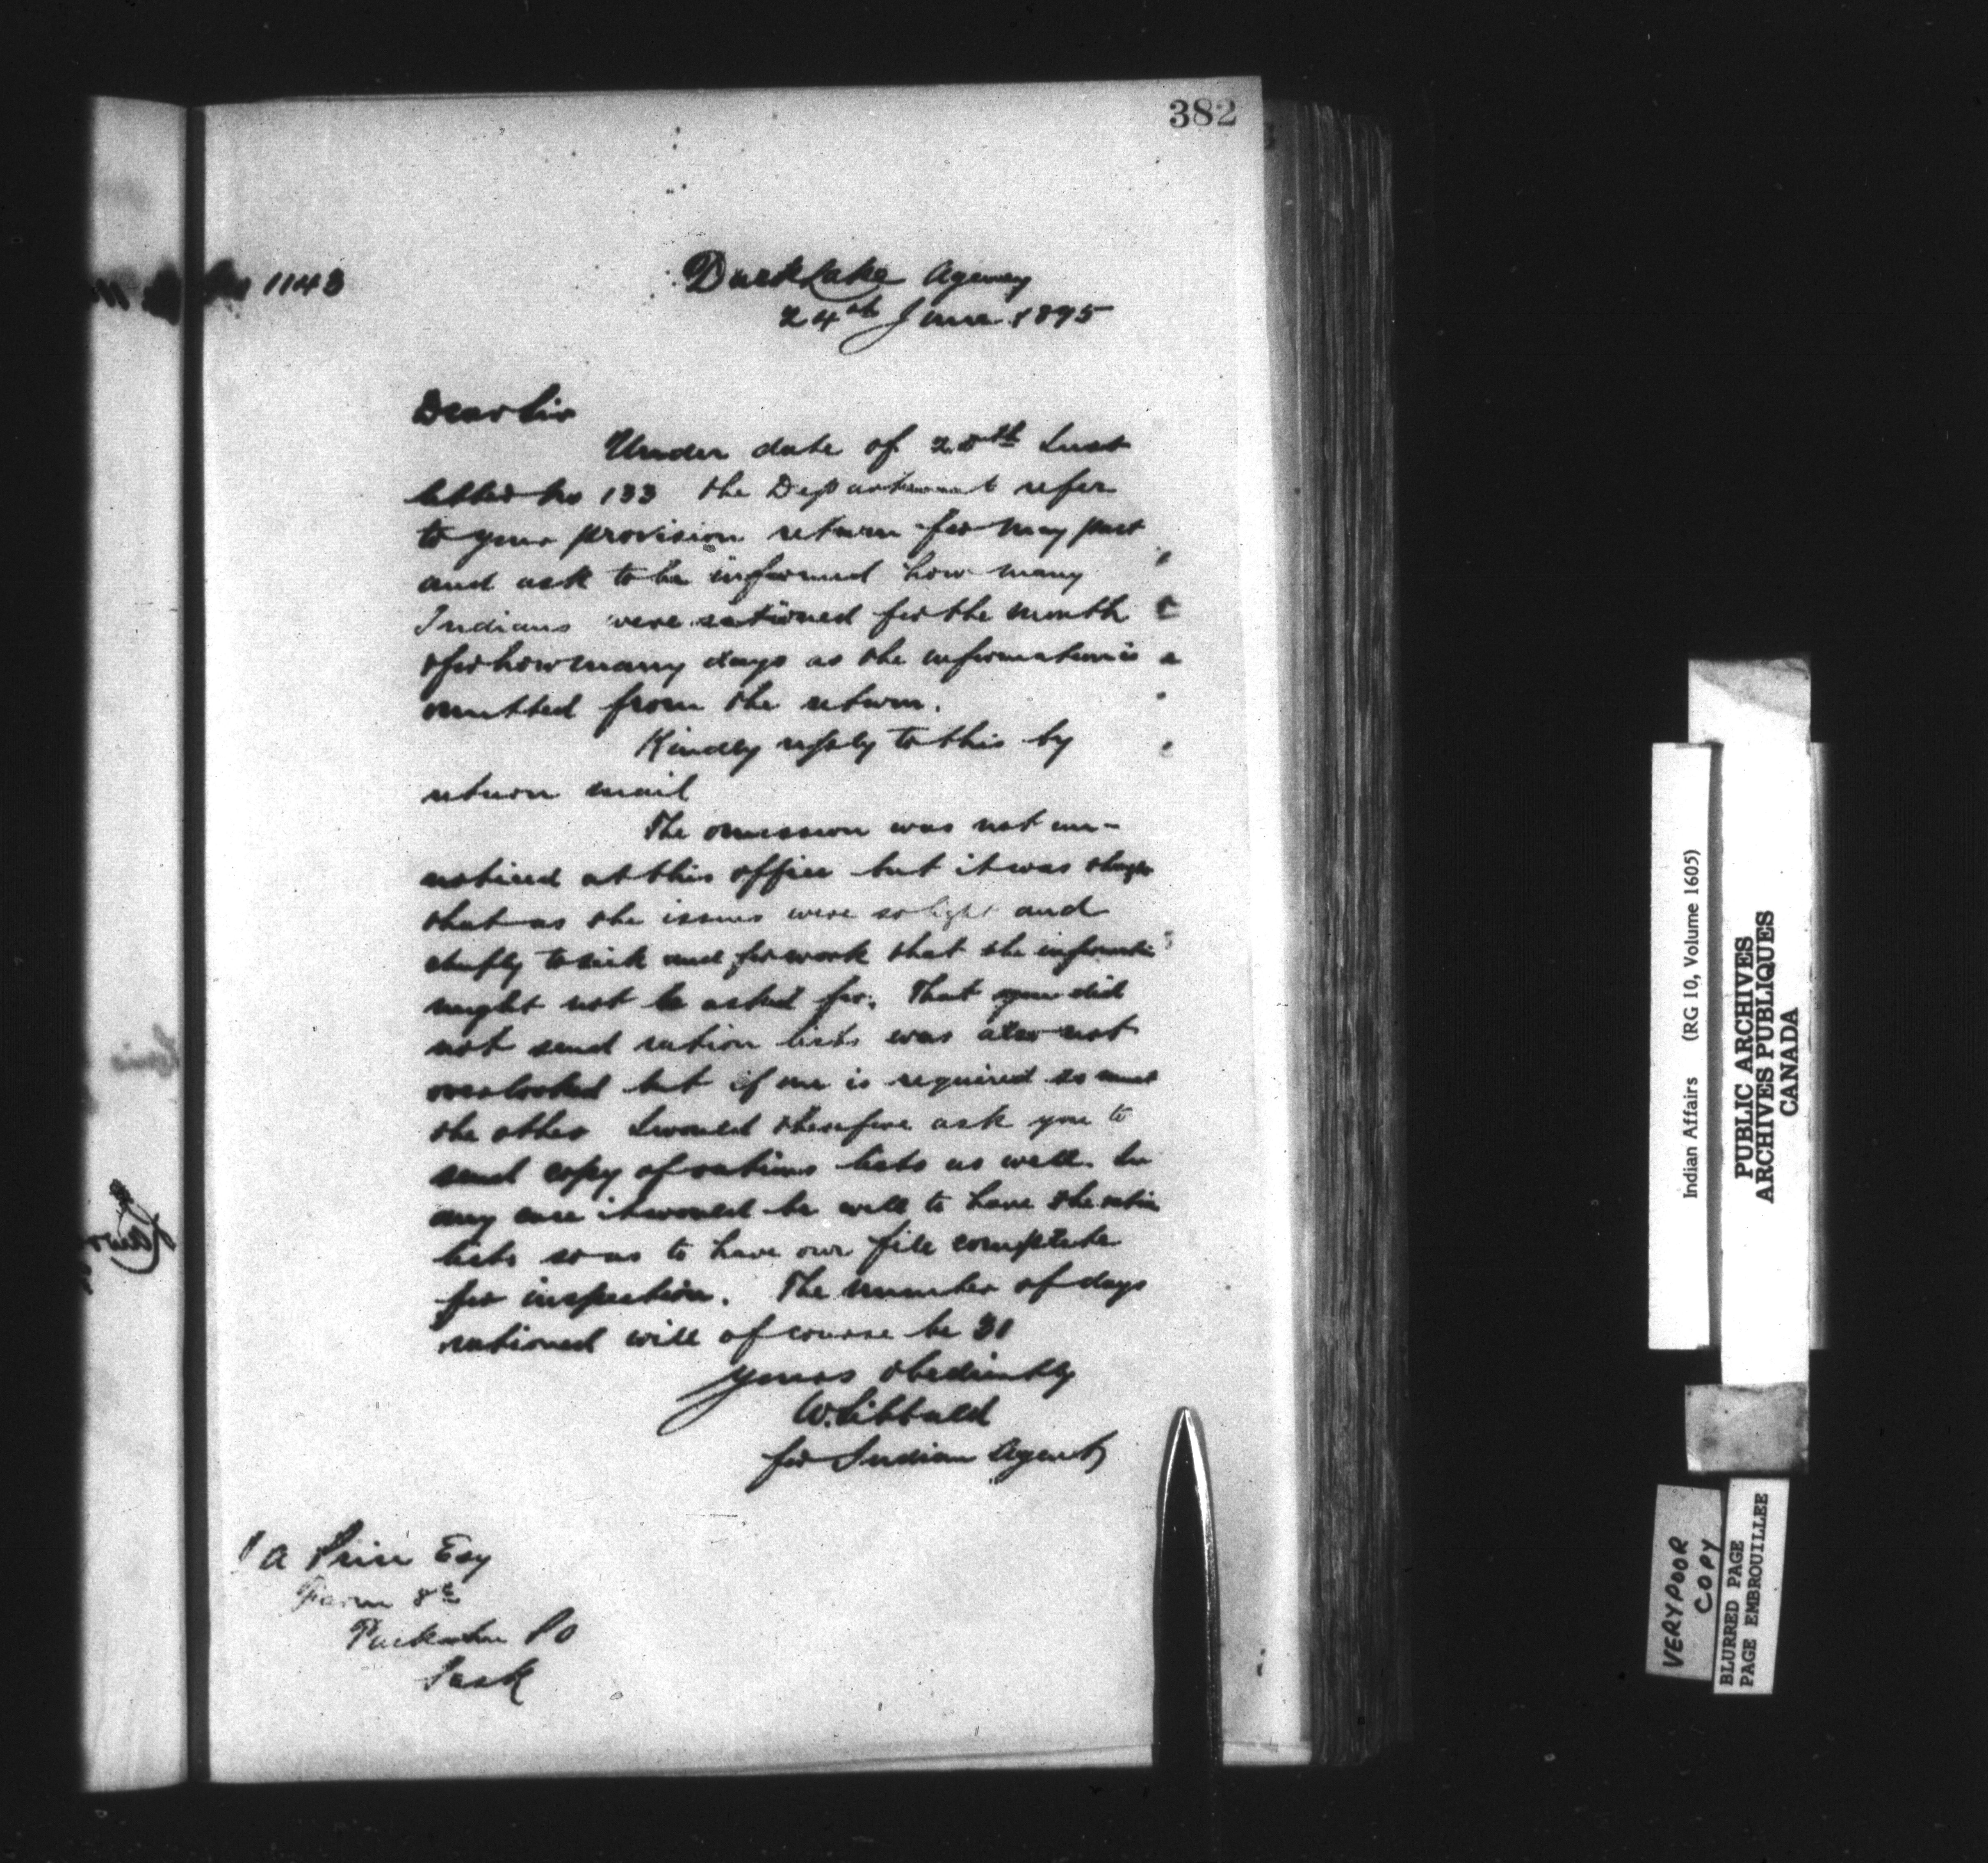 382
No 1143
Duck Lake Agency
24th June 1895
Dear Sir
Under date of 20th Inst
letter No 133 the Department refer
to your provision return for May past
and ask to be informed how many
Indians were rationed for the month
& for how many days as the information is
omitted from the return.
Kindly reply to this by
return mail
The omission was not un-
noticed at this office but it was thought
that as the issues were so light and
chiefly to sick and for work that the informatn
might not be asked for. That you did
not send ration lists was also not
overlooked but if one is required so must
the other I would therefore ask you to
send copy of rations lists as well. In
any case it would be well to have the ration
lists so as to have our file complete
for inspection. The number of days
rationed will of course be 31
Yours obediently
W. Sibbald
for Indian Agent
A Price Esq
Farm
P O
Sask
Indian Affairs (RG 10, Volume 1605)
PUBLIC ARCHIVES
ARCHIVES PUBLIQUES
CANADA
VERY POOR
COPY
BLURRED PAGE
PAGE EMBROUILLEE